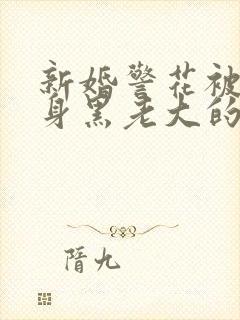 新婚警花被
身黑老大的
隋九